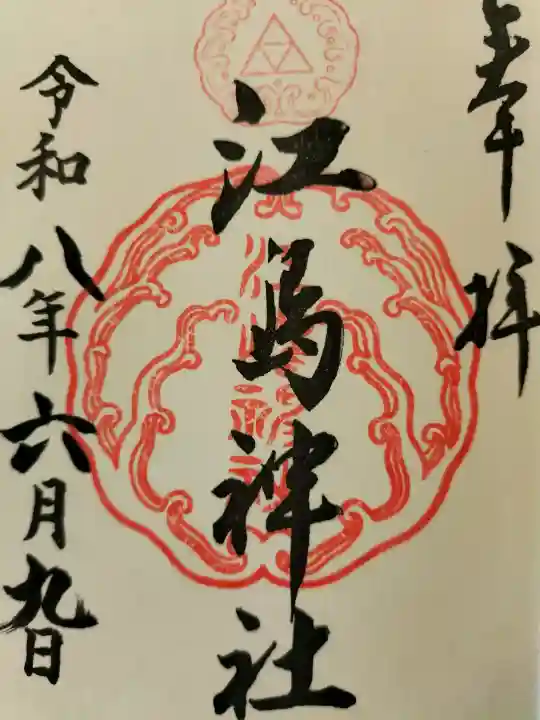 奉拝
江島神社
令和八年六月九日